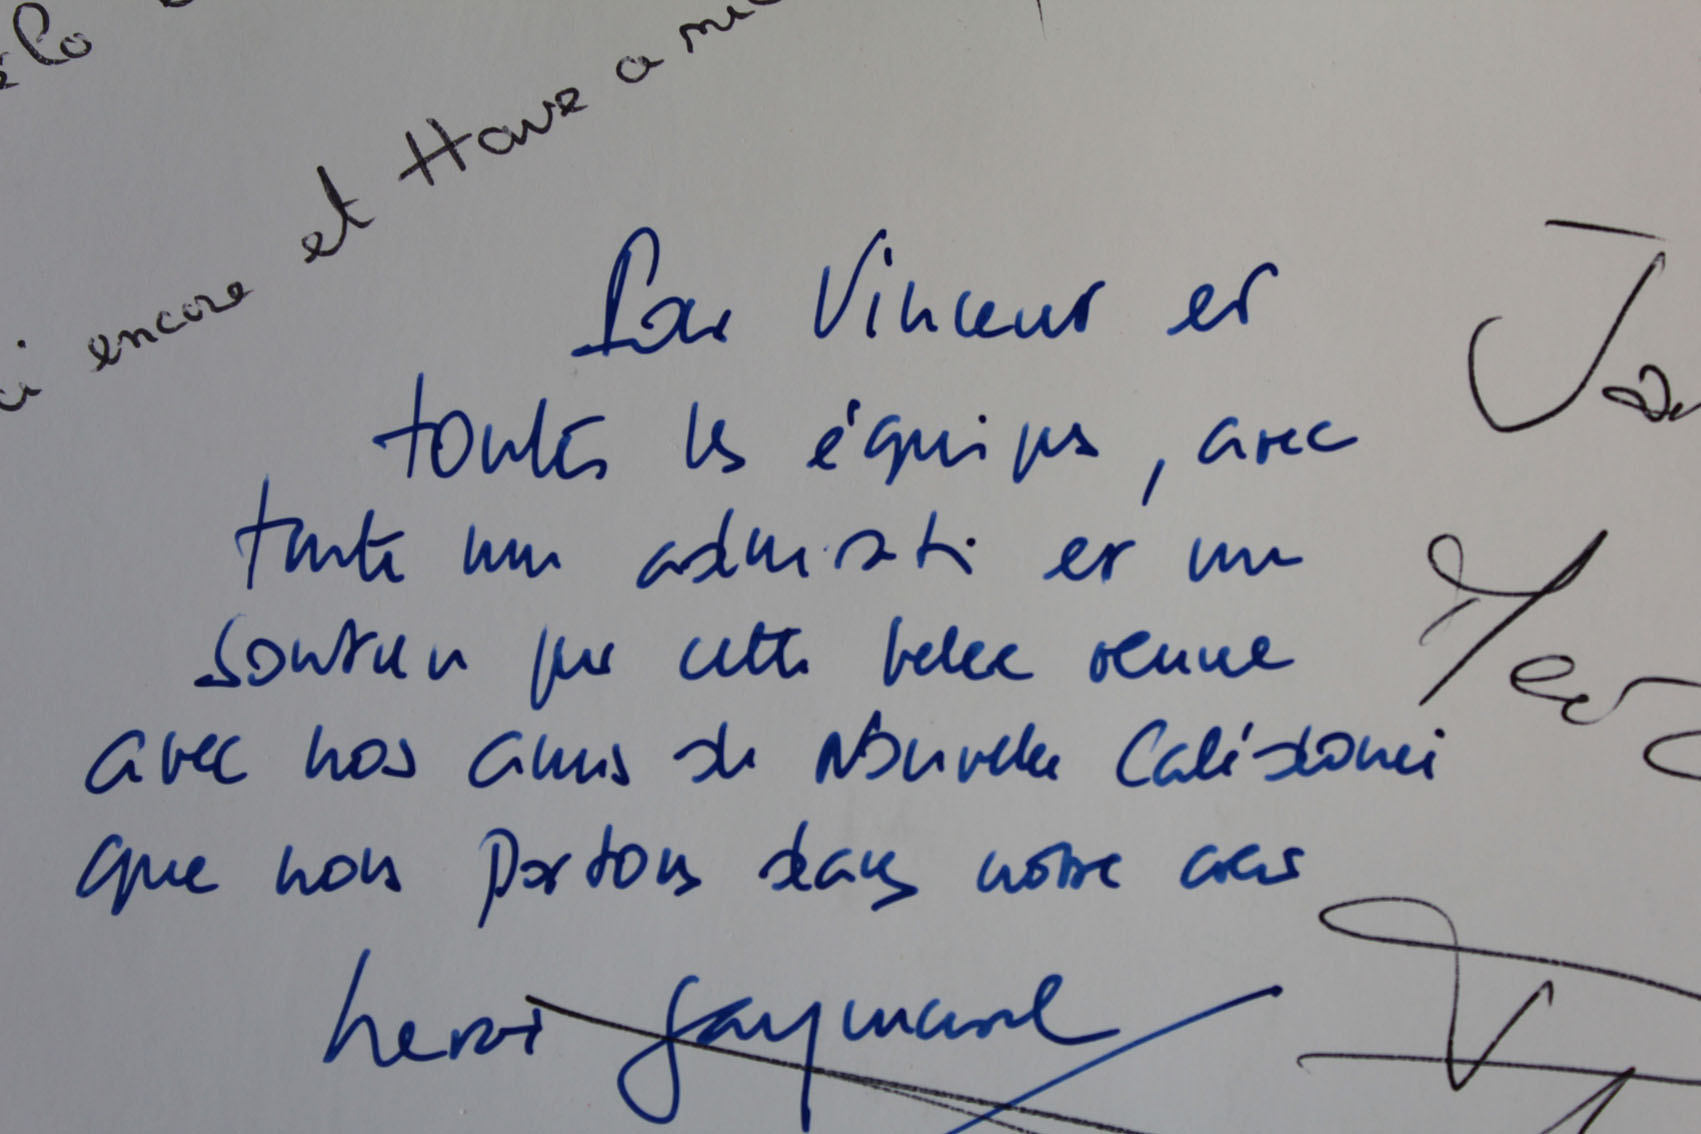 élo
encore et Have a
Pour Vincent et
toutes les équipes, avec
toute mon admiration et mon
soutien pour cette belle
avec nos amis de Nouvelle Calédonie
que nous portons dans notre cœur
hervé gaymard